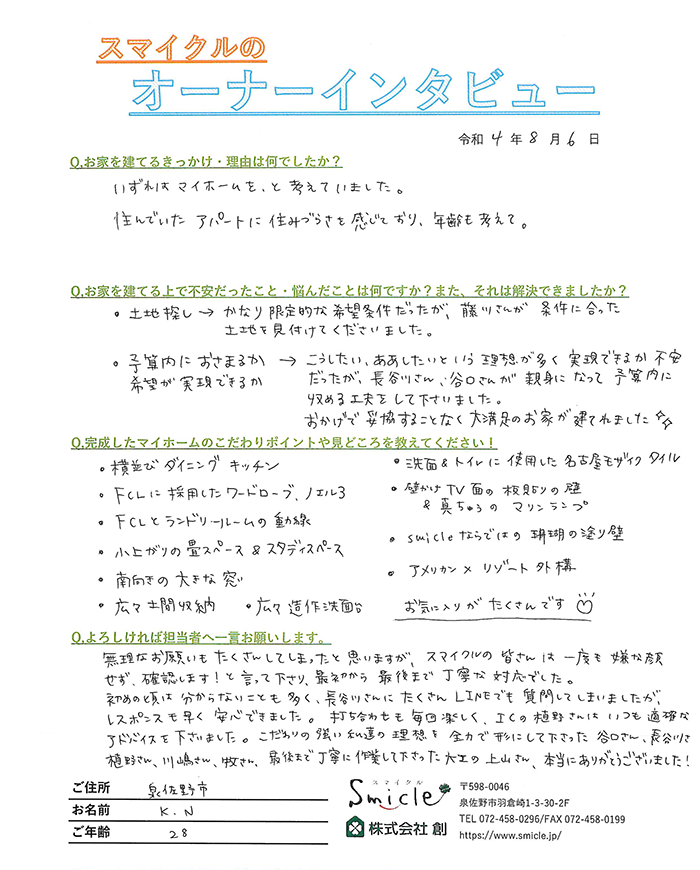 スマイクルの
オーナーインタビュー
令和 4 年 8 月 6 日
Q.お家を建てるきっかけ・理由は何でしたか？
いずれは マイホームを、と 考えていました。
住んでいた アパートに 住みづらさを 感じており、年齢も考えて。
Q.お家を建てる上で不安だったこと・悩んだことは何ですか？また、それは解決できましたか？
• 土地探し → かなり 限定的な 希望条件だったが、藤川さんが 条件に合った
土地を見付けてくださいました。
• 予算内におさまるか → こうしたい、ああしたいという 理想が多く 実現できるか 不安
希望が実現できるか だったが、長谷川さん、谷口さんが 親身になって 予算内に
収める工夫をして下さいました。
おかげで 妥協することなく 大満足のお家が建てれました
Q.完成したマイホームのこだわりポイントや見どころを教えてください！
• 横並び ダイニング キッチン
• FCLに 採用したワードローブ、ノエル3
• FCLとランドリールームの 動線
• 小上がりの畳スペース & スタディスペース
• 南向きの 大きな 窓
• 広い 土間収納 • 広い 造作洗面台
• 洗面&トイレに 使用した 名古屋モザイク タイル
• 壁かけTV面の 板貼りの 壁
& 真ちゅうの マリンランプ
• smicleならではの 珊瑚の塗り壁
• アメリカン × リゾート 外構
お気に入りが たくさんです
Q.よろしければ担当者へ一言お願いします。
無理なお願いも たくさんしてしまったと 思いますが、スマイクルの 皆さんは 一度も 嫌な顔
せず、確認します！と 言って下さり、最初から 最後まで 丁寧な 対応でした。
初めの頃は 分からないことも 多く、長谷川さんに たくさん LINEでも 質問してしまいましたが、
レスポンスも早く 安心できました。打ち合わせも 毎回 楽しく、ICの 植野さんは いつも 適確な
アドバイスを下さいました。こだわりの 強い 私達の 理想を 全力で 形にして下さった 谷口さん、長谷川さん
植野さん、川嶋さん、牧さん、最後まで丁寧に作業して下さった 大工の上山さん、本当にありがとうございました！
ご住所 泉佐野市
お名前 K.N
ご年齢 28
スマイクル
Smicle
株式会社 創
〒598-0046
泉佐野市羽倉崎1-3-30-2F
TEL 072-458-0296/FAX 072-458-0199
https://www.smicle.jp/